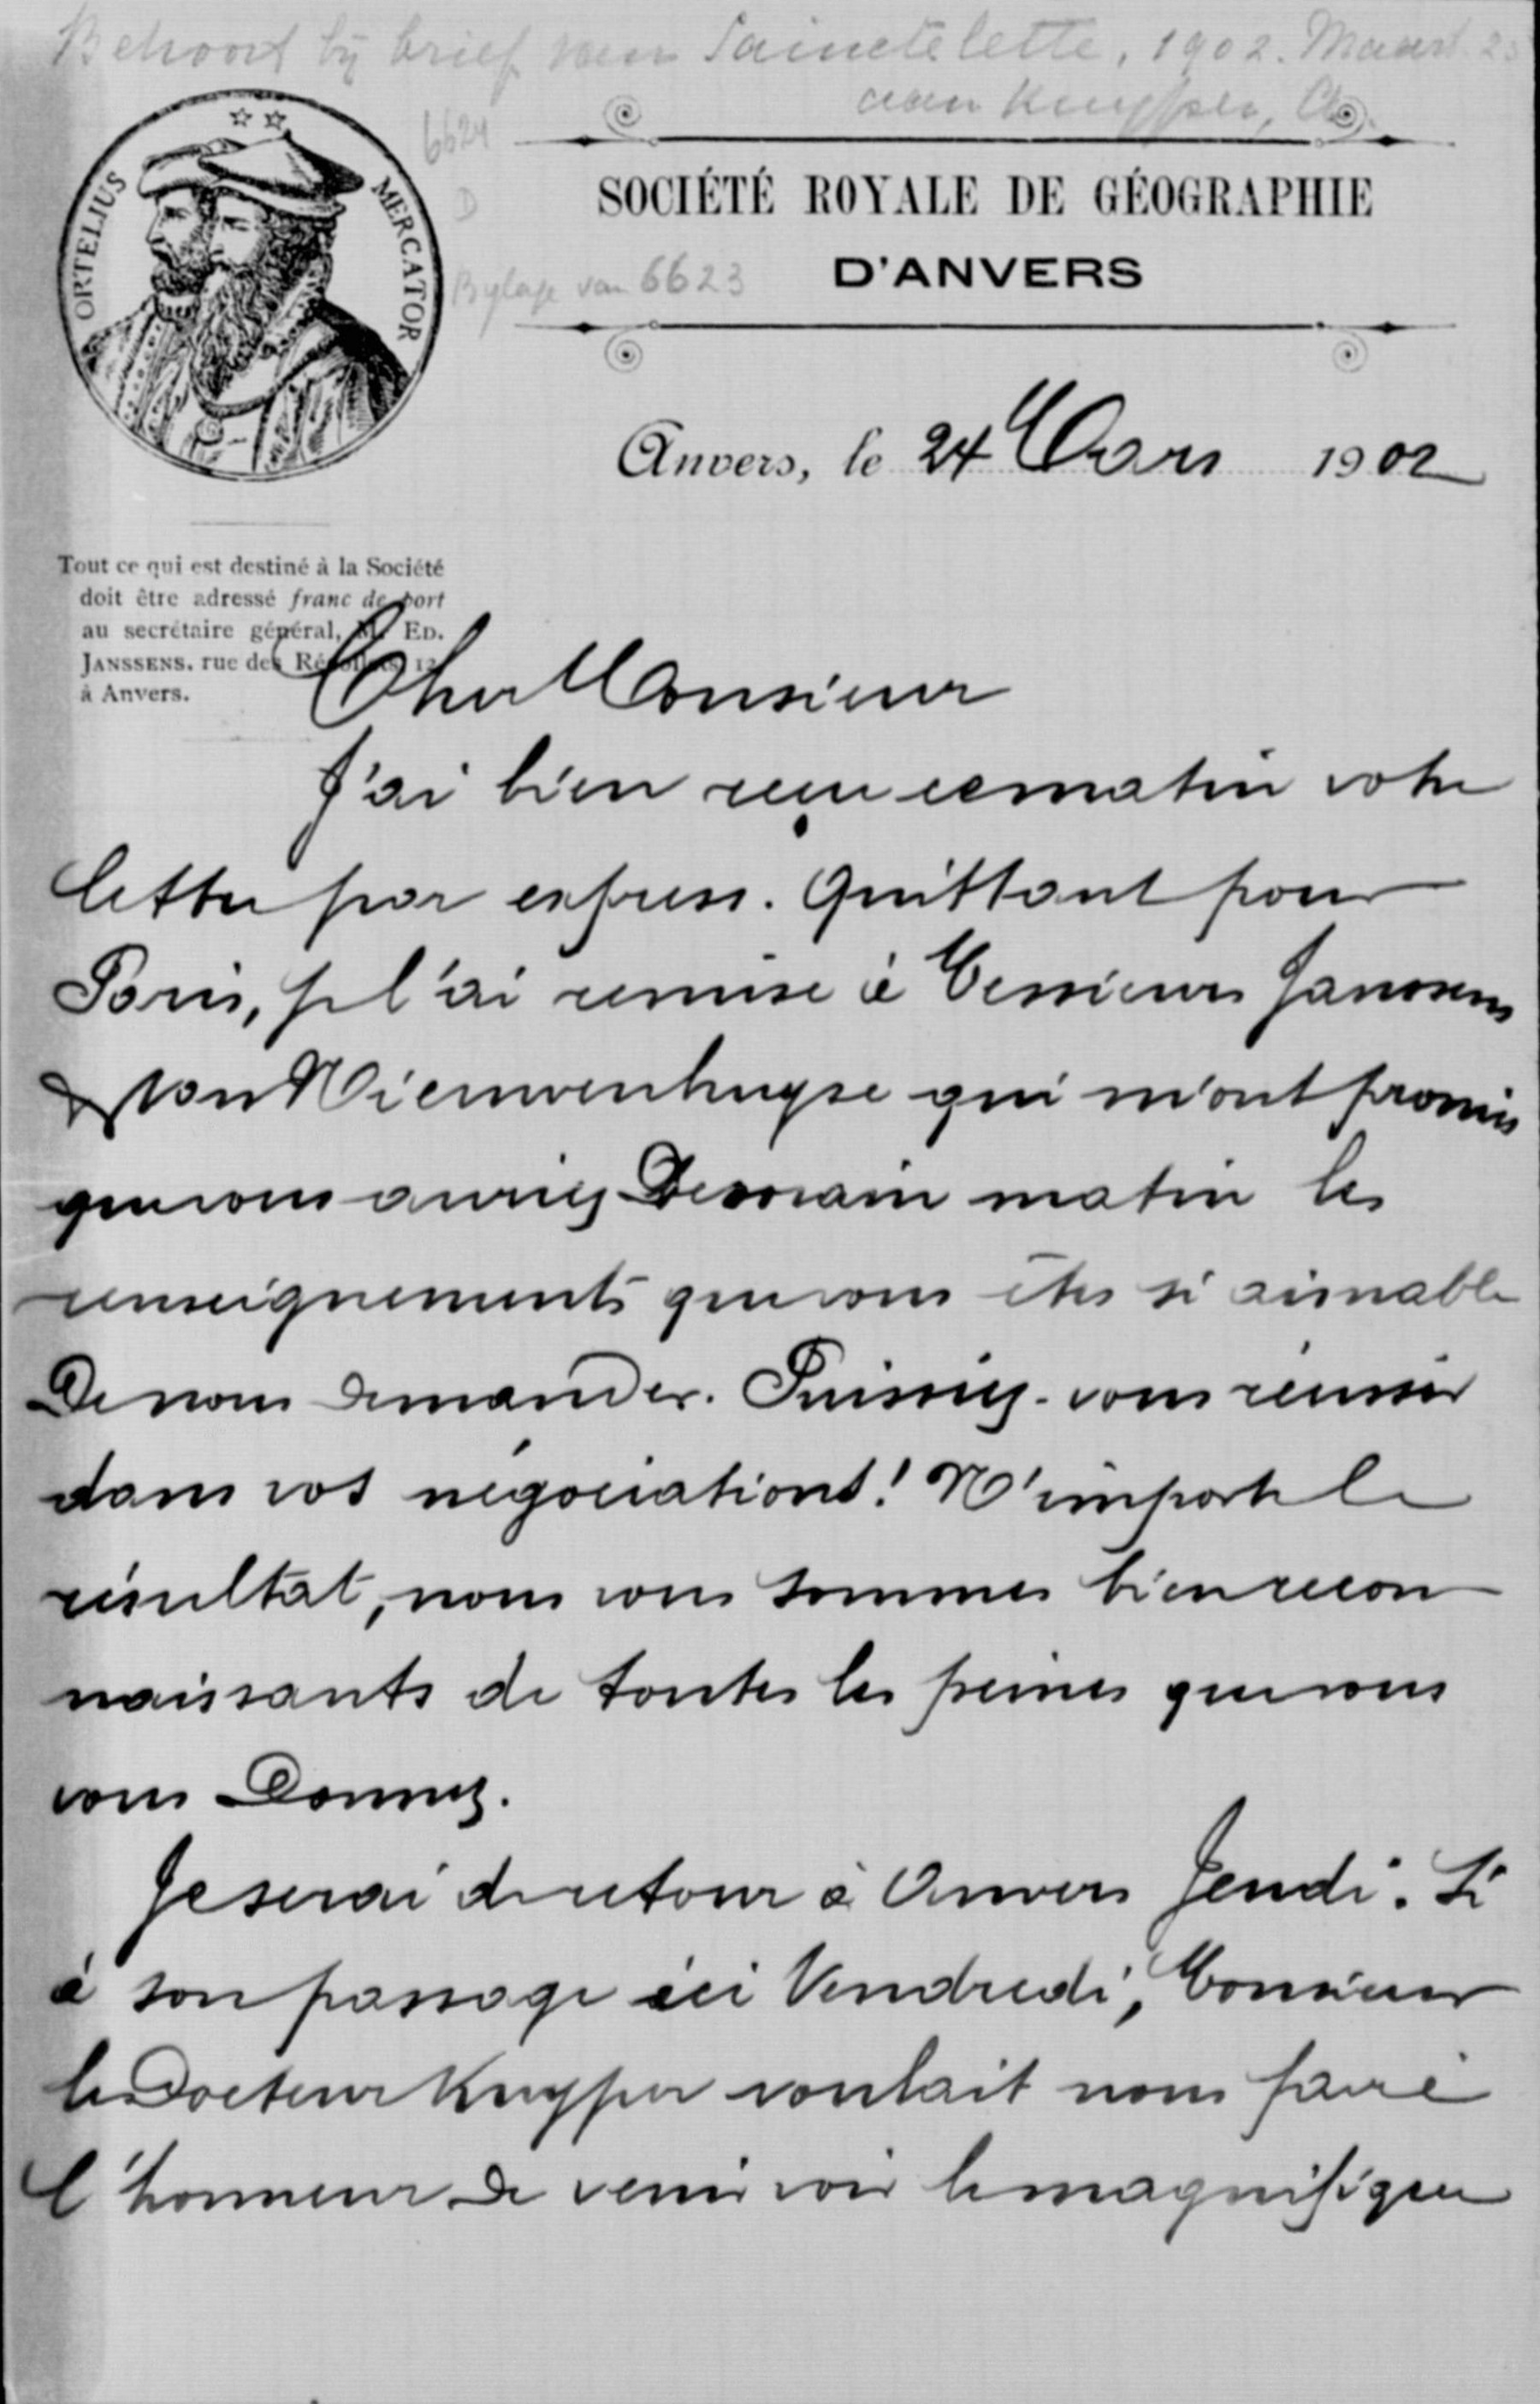 Behoort bij brief van Sainctelette, 1902. Maart 23
aan Kuyper, A.
6624
D
ORTELIUS
MERCATOR
SOCIÉTÉ ROYALE DE GÉOGRAPHIE
D'ANVERS
Bylage van 6623
Anvers, le 24 Mars 1902
Tout ce qui est destiné à la Société
doit être adressé franc de port
au secrétaire général, M. ED.
JANSSENS, rue des Récollets, 12
à Anvers.
Cher Monsieur
J'ai bien reçu ce matin votre
lettre par express. Quittant pour
Paris, je l'ai remise à Messieurs Janssens
& van Nieuwenhuyse qui m'ont promis
que vous auriez Demain matin les
renseignements que vous êtes si aimable
De nous demander. Puissiez-vous réussir
dans vos négociations! N'importe le
résultat, nous vous sommes bien recon
naissants de toutes les peines que vous
vous Donnez.
Je serai de retour à Anvers Jeudi. Si
à son passage ici Vendredi, Monsieur
le Docteur Kuyper voulait nous faire
l'honneur de venir voir le magnifique